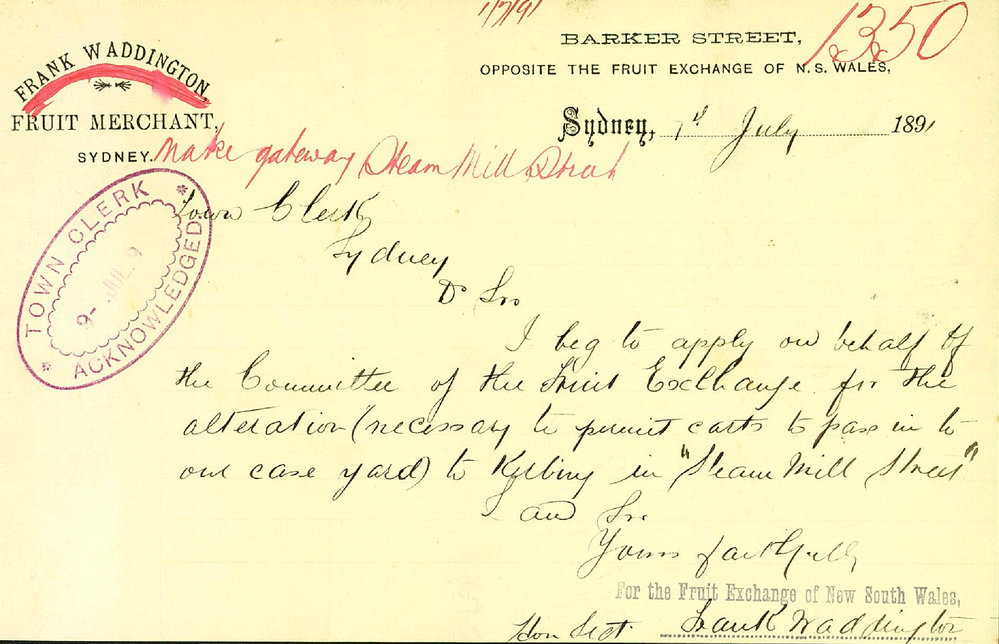 1/7/91
1350
FRANK WADDINGTON,
FRUIT MERCHANT,
SYDNEY.
BARKER STREET,
OPPOSITE THE FRUIT EXCHANGE OF N. S. WALES,
Sydney, 7th July 1891
Make gateway Steam Mill Street
TOWN CLERK
9- JUL 9
ACKNOWLEDGED
Town Clerk
Sydney
Dr Sir
I beg to apply on behalf of
the Committee of the Fruit Exchange for the
alteration (necessary to permit carts to pass in to
our case yard) to Kerbing in "Steam Mill Street"
I am Sir
Yours faithfully
For the Fruit Exchange of New South Wales,
Hon Sect. Frank Waddington